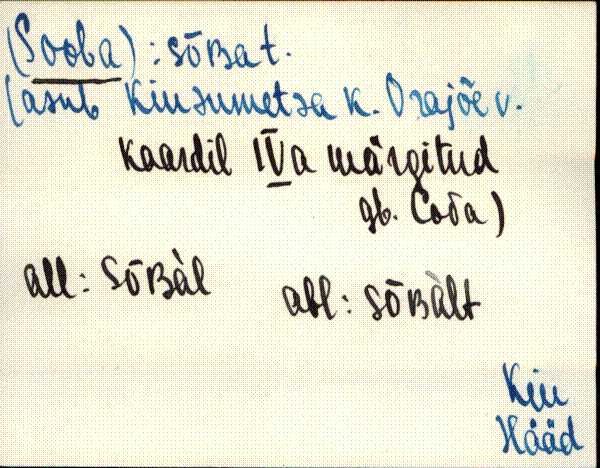 (Sooba) : sõʙat.
(asub Kiusumetsa k. Orajõe v.
Kaardil IVa märgitud
gb. Cooa)
all : sõʙàl abl : sõʙàlt
Kiu
Hääd